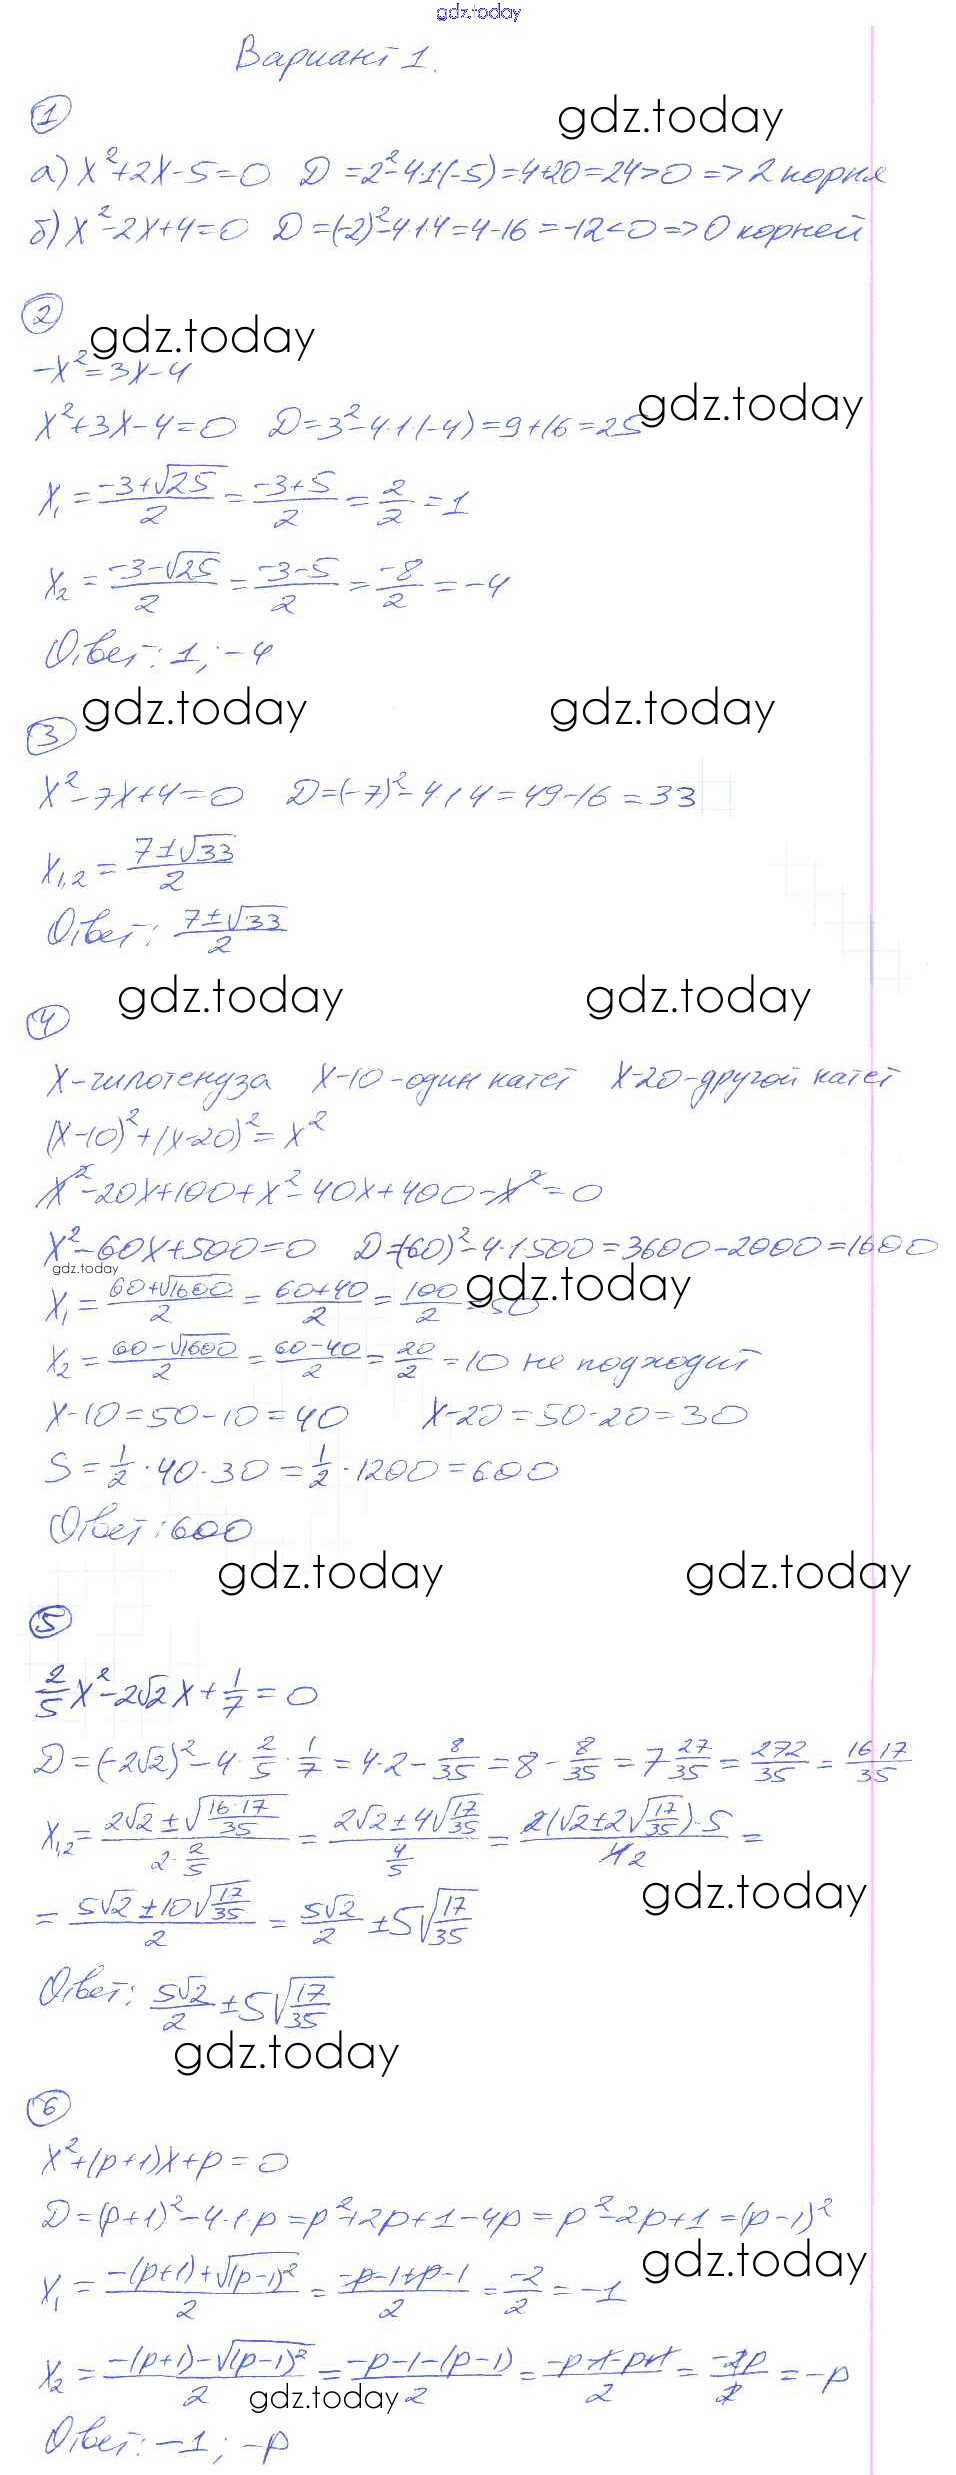 gdz.today
Вариант 1.
1
gdz.today
а) x²+2x-5=0 D=2²-4·1·(-5)=4+20=24>0 => 2 корня
б) x²-2x+4=0 D=(-2)²-4·1·4=4-16=-12<0 => 0 корней
2
gdz.today
-x²=3x-4
gdz.today
x²+3x-4=0 D=3²-4·1·(-4)=9+16=25
x₁=(-3+√25)/2=(-3+5)/2=2/2=1
x₂=(-3-√25)/2=(-3-5)/2=-8/2=-4
Ответ: 1; -4
gdz.today gdz.today
3
x²-7x+4=0 D=(-7)²-4·1·4=49-16=33
x₁,₂=(7±√33)/2
Ответ: (7±√33)/2
gdz.today gdz.today
4
x-гипотенуза x-10-один катет x-20-другой катет
(x-10)²+(x-20)²=x²
x²-20x+100+x²-40x+400-x²=0
x²-60x+500=0 D=(-60)²-4·1·500=3600-2000=1600
gdz.today gdz.today
x₁=(60+√1600)/2=(60+40)/2=100/2=50
x₂=(60-√1600)/2=(60-40)/2=20/2=10 не подходит
x-10=50-10=40 x-20=50-20=30
S=1/2·40·30=1/2·1200=600
Ответ: 600
gdz.today gdz.today
5
2/5x²-2√2x+1/7=0
D=(-2√2)²-4·2/5·1/7=4·2-8/35=8-8/35=7 27/35=272/35=16·17/35
x₁,₂=(2√2±√(16·17/35))/(2·2/5)=(2√2±4√(17/35))/(4/5)=(2(√2±2√(17/35))·5)/(4 2)=
gdz.today
=(5√2±10√(17/35))/2=5√2/2±5√(17/35)
Ответ: 5√2/2±5√(17/35)
gdz.today
6
x²+(p+1)x+p=0
D=(p+1)²-4·1·p=p²+2p+1-4p=p²-2p+1=(p-1)²
gdz.today
x₁=(-(p+1)+√(p-1)²)/2=(-p-1+p-1)/2=-2/2=-1
x₂=(-(p+1)-√(p-1)²)/2=(-p-1-(p-1))/2=(-p-1-p+1)/2=-2p/2=-p
gdz.today
Ответ: -1; -p